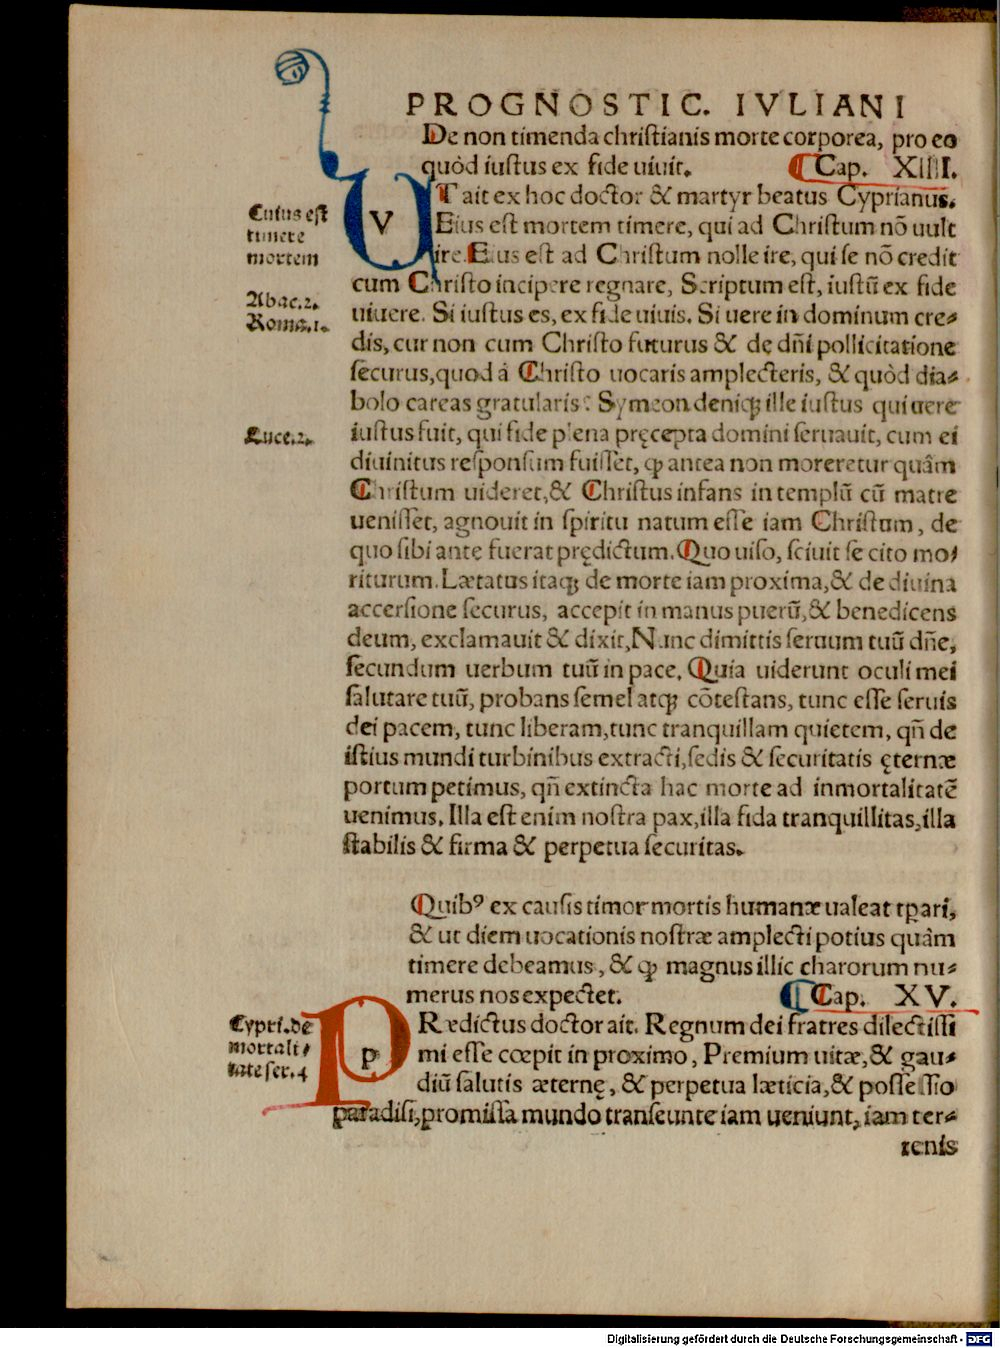 PROGNOSTIC. IVLIANI
De non timenda christianis morte corporea, pro eo
quòd iustus ex fide uiuit. Cap. XIIII.
VT ait ex hoc doctor & martyr beatus Cyprianus.
Eius est mortem timere, qui ad Christum nō uult
ire. Eius est ad Christum nolle ire, qui se nō credit
cum Christo incipere regnare, Scriptum est, iustū ex fide
uiuere. Si iustus es, ex fide uiuis. Si uere in dominum cre-
dis, cur non cum Christo futurus & de dn̄i pollicitatione
securus, quod á Christo uocaris amplecteris, & quòd dia-
bolo careas gratularis? Symeon deniqꝫ ille iustus qui uere
iustus fuit, qui fide plena pręcepta domini seruauit, cum ei
diuinitus responsum fuisset, ꝙ antea non moreretur quâm
Christum uideret, & Christus infans in templū cū matre
uenisset, agnouit in spiritu natum esse iam Christum, de
quo sibi ante fuerat prędictum. Quo uiso, sciuit se cito mo-
riturum. Lætatus itaqꝫ de morte iam proxima, & de diuina
accersione securus, accepit in manus puerū, & benedicens
deum, exclamauit & dixit, Nunc dimittis seruum tuū dn̄e,
secundum uerbum tuū in pace. Quia uiderunt oculi mei
salutare tuū, probans semel atqꝫ cōtestans, tunc esse seruis
dei pacem, tunc liberam, tunc tranquillam quietem, qn̄ de
istius mundi turbinibus extracti, sedis & securitatis ęternæ
portum petimus, qn̄ extincta hac morte ad inmortalitatē
uenimus. Illa est enim nostra pax, illa fida tranquillitas, illa
stabilis & firma & perpetua securitas.
Quibꝰ ex causis timor mortis humanæ ualeat tꝑari,
& ut diem uocationis nostræ amplecti potius quâm
timere debeamus, & ꝙ magnus illic charorum nu-
merus nos expectet. Cap. XV.
PRædictus doctor ait. Regnum dei fratres dilectissi
mi esse cœpit in proximo, Premium uitæ, & gau-
diū salutis æternę, & perpetua læticia, & possessio
paradisi, promissa mundo transeunte iam ueniunt, iam ter-
renis
Cuius est
timere
mortem
Abac.2.
Roma.1.
Luce.2.
Cypri. de
mortali-
tate ser. 4
Digitalisierung gefördert durch die Deutsche Forschungsgemeinschaft - DFG